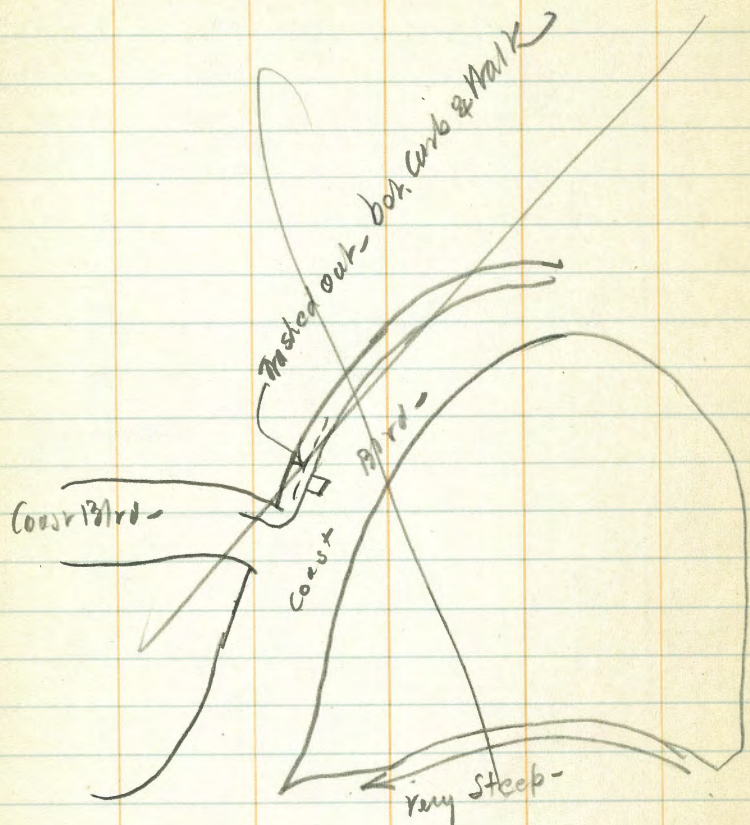 Washed out - bet. Curb & Walk
Coast Blvd -
Coast Blvd -
Very Steep -